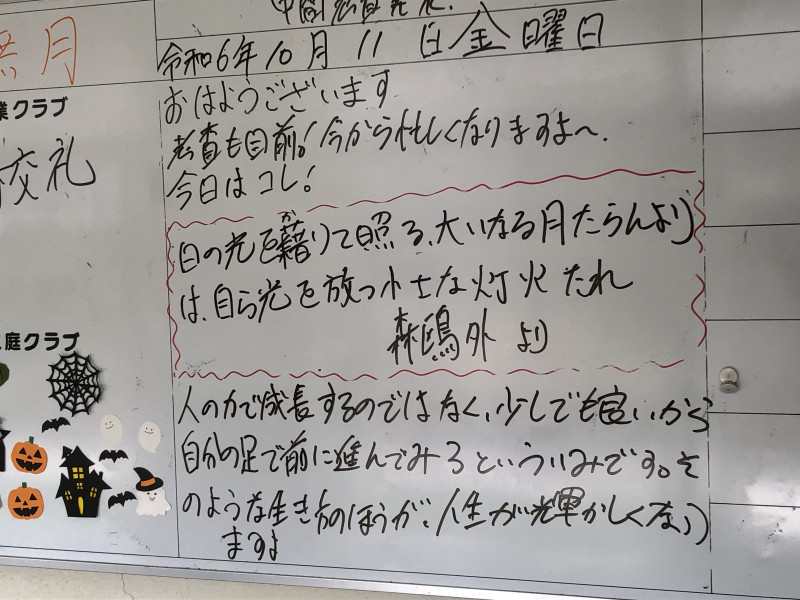 無月
中間考査発表.
令和6年10月11日金曜日
業クラブ
交礼
おはようございます
考査も目前!今から忙しくなりますよ〜.
今日はコレ!
日の光を藉りて照る、大いなる月たらんより
か
は、自ら光を放つ小さな灯火たれ
森鴎外より
庭クラブ
人の力で成長するのではなく、少しでも良いから
自分の足で前に進んでみるといういみです。そ
のような生き方のほうが、人生が輝かしくなり
ますよ